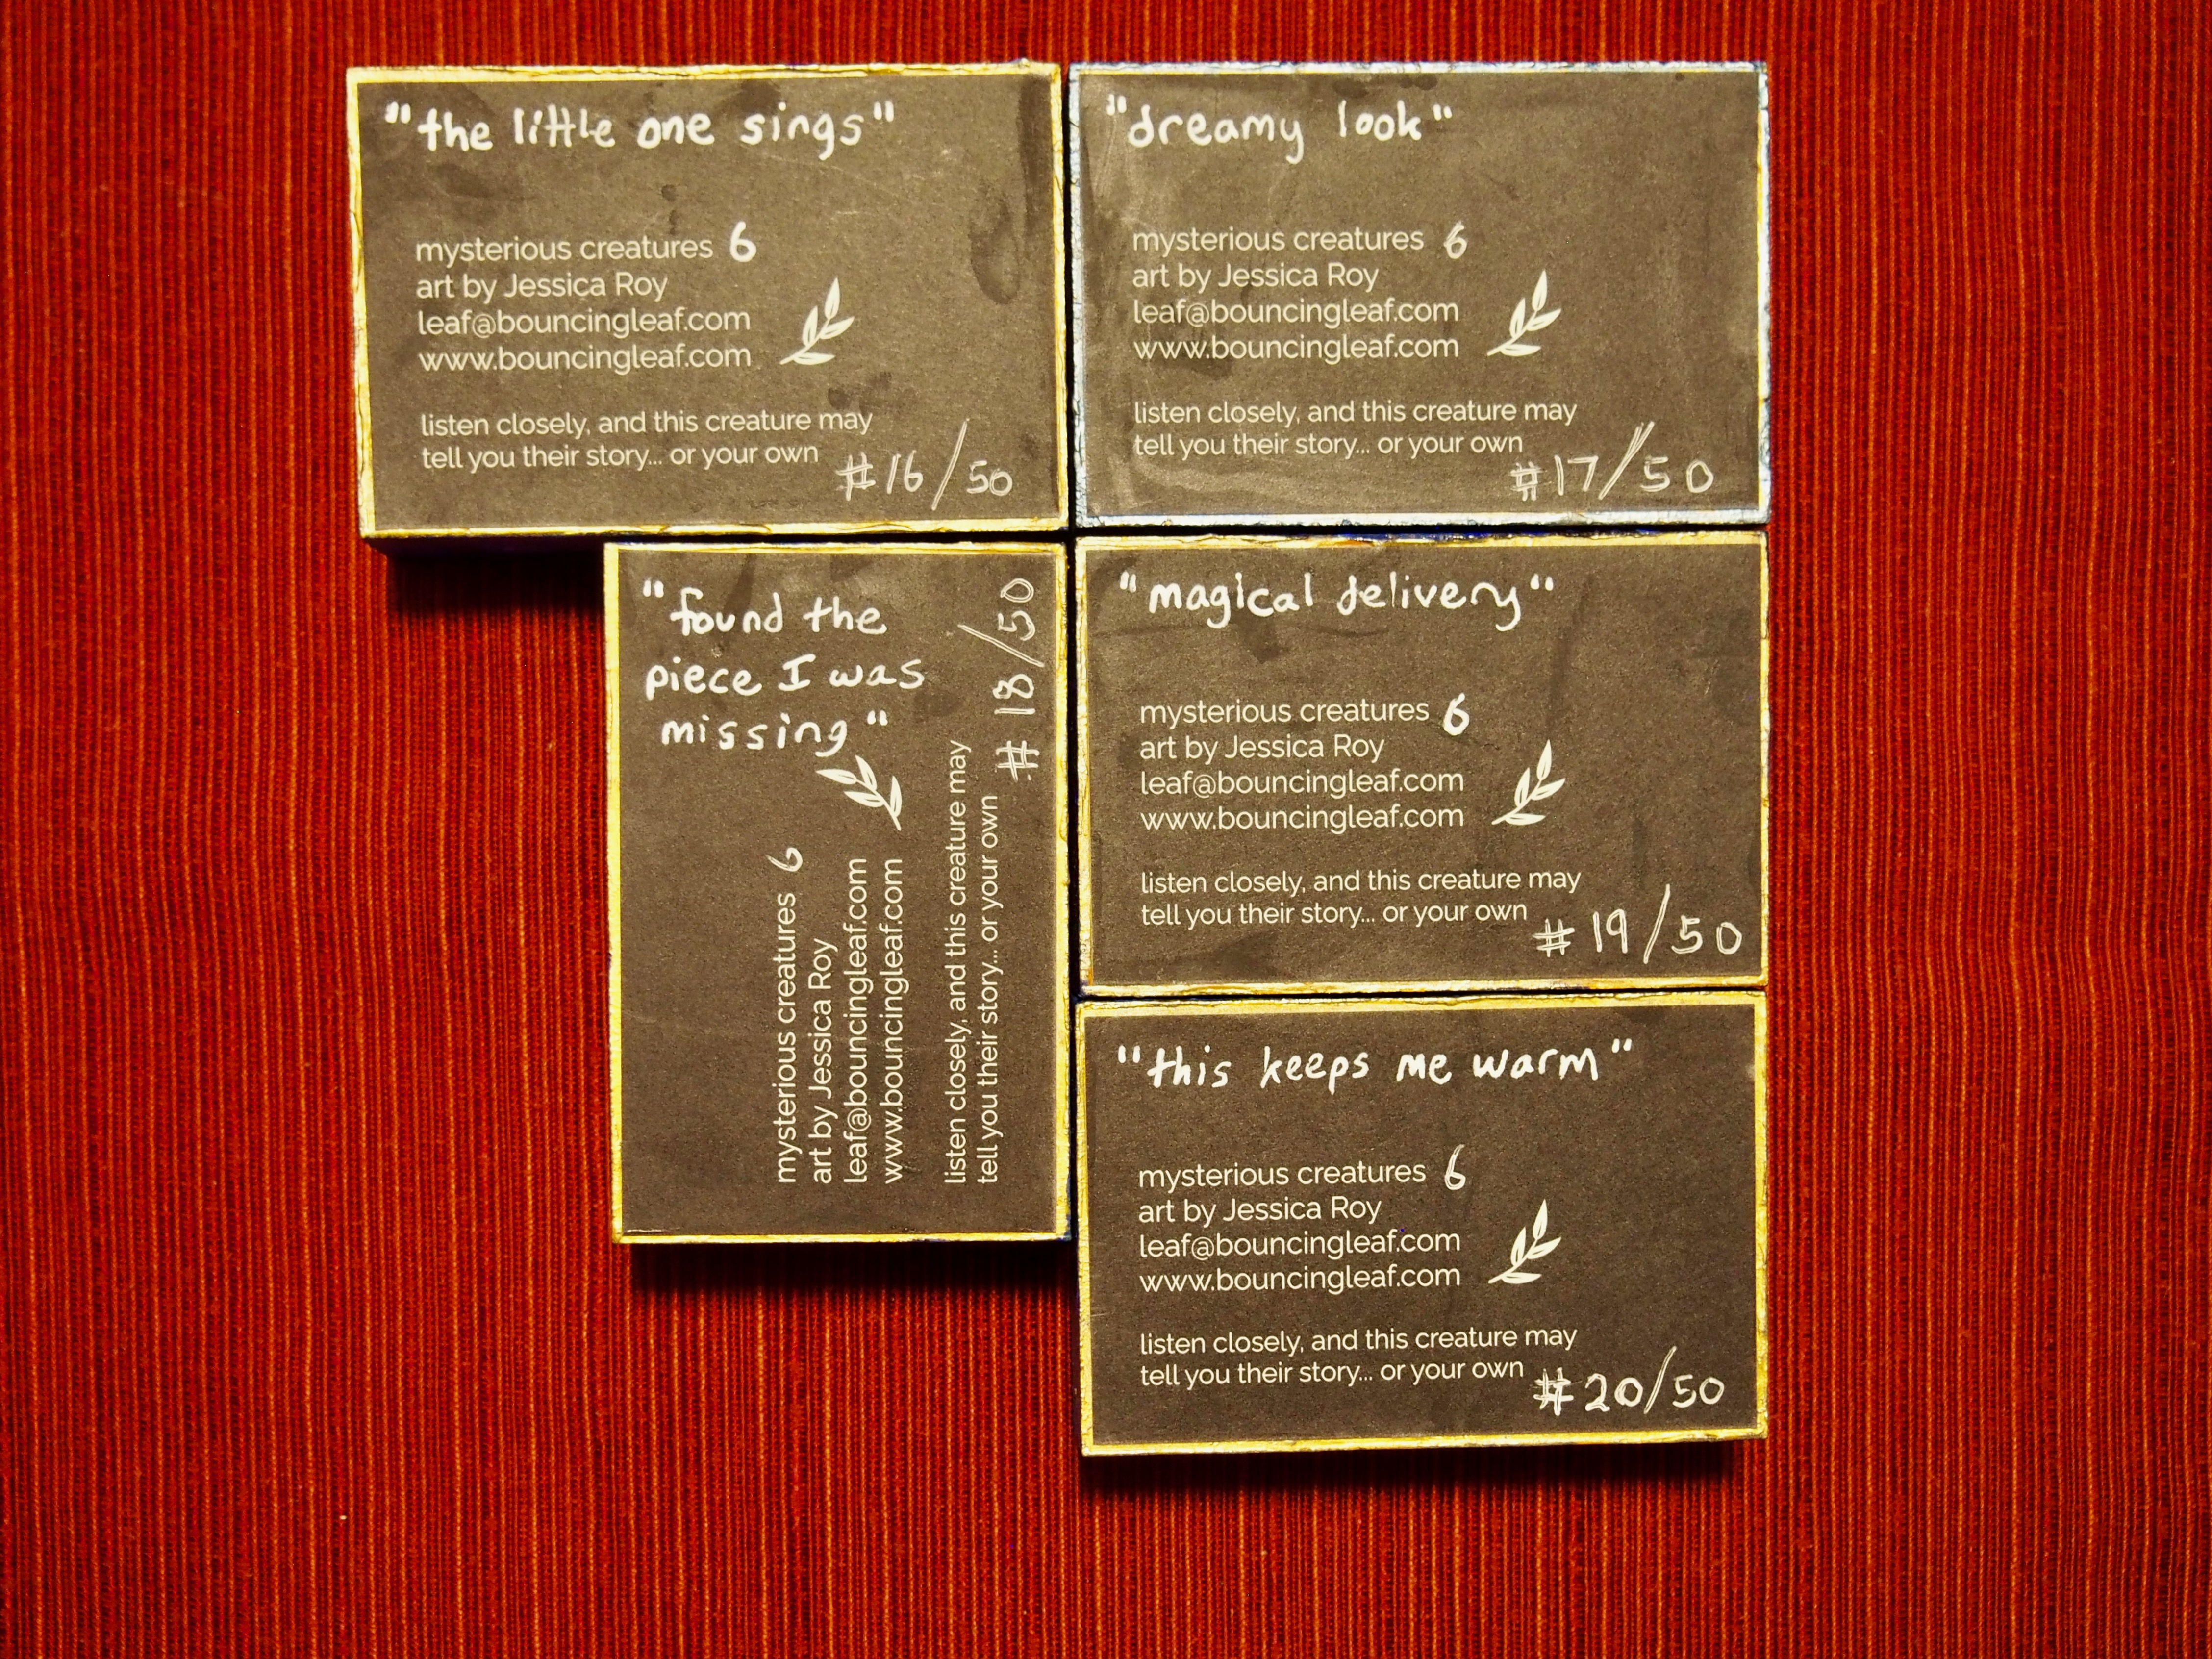 "the little one sings"
mysterious creatures 6
art by Jessica Roy
leaf@bouncingleaf.com
www.bouncingleaf.com
listen closely, and this creature may
tell you their story... or your own
#16/50
"dreamy look"
mysterious creatures 6
art by Jessica Roy
leaf@bouncingleaf.com
www.bouncingleaf.com
listen closely, and this creature may
tell you their story... or your own
#17/50
"found the
piece I was
missing"
mysterious creatures 6
art by Jessica Roy
leaf@bouncingleaf.com
www.bouncingleaf.com
listen closely, and this creature may
tell you their story... or your own
#18/50
"magical delivery"
mysterious creatures 6
art by Jessica Roy
leaf@bouncingleaf.com
www.bouncingleaf.com
listen closely, and this creature may
tell you their story... or your own
#19/50
"this keeps me warm"
mysterious creatures 6
art by Jessica Roy
leaf@bouncingleaf.com
www.bouncingleaf.com
listen closely, and this creature may
tell you their story... or your own
#20/50